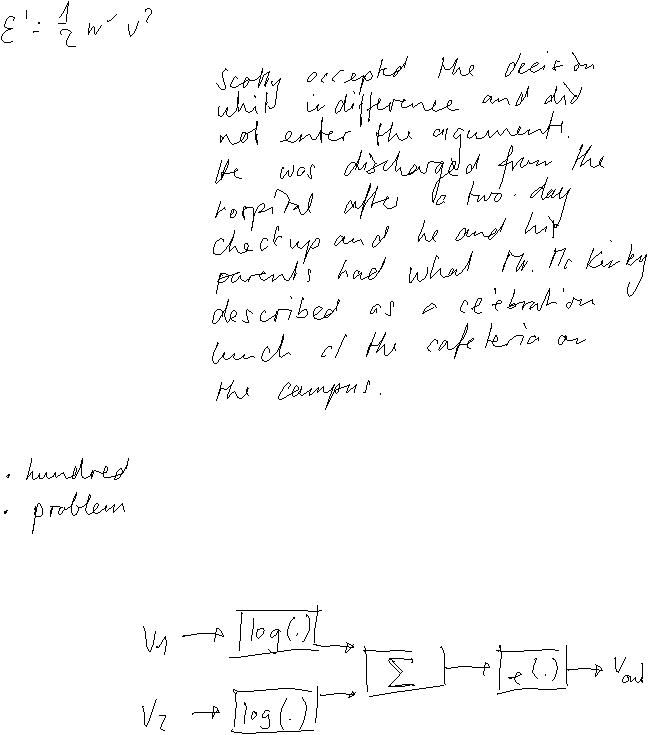 E' = 1/2 m v²
Scotty accepted the decision
whit indifference and did
not enter the arguments.
He was discharged from the
hospital after a two-day
checkup and he and his
parents had what Mr. Mc Kinky
described as a celebration
lunch at the cafeteria on
the campus.
· hundred
· problem
V1 → log(.)
Σ → e(.) → Vout
V2 → log(.)